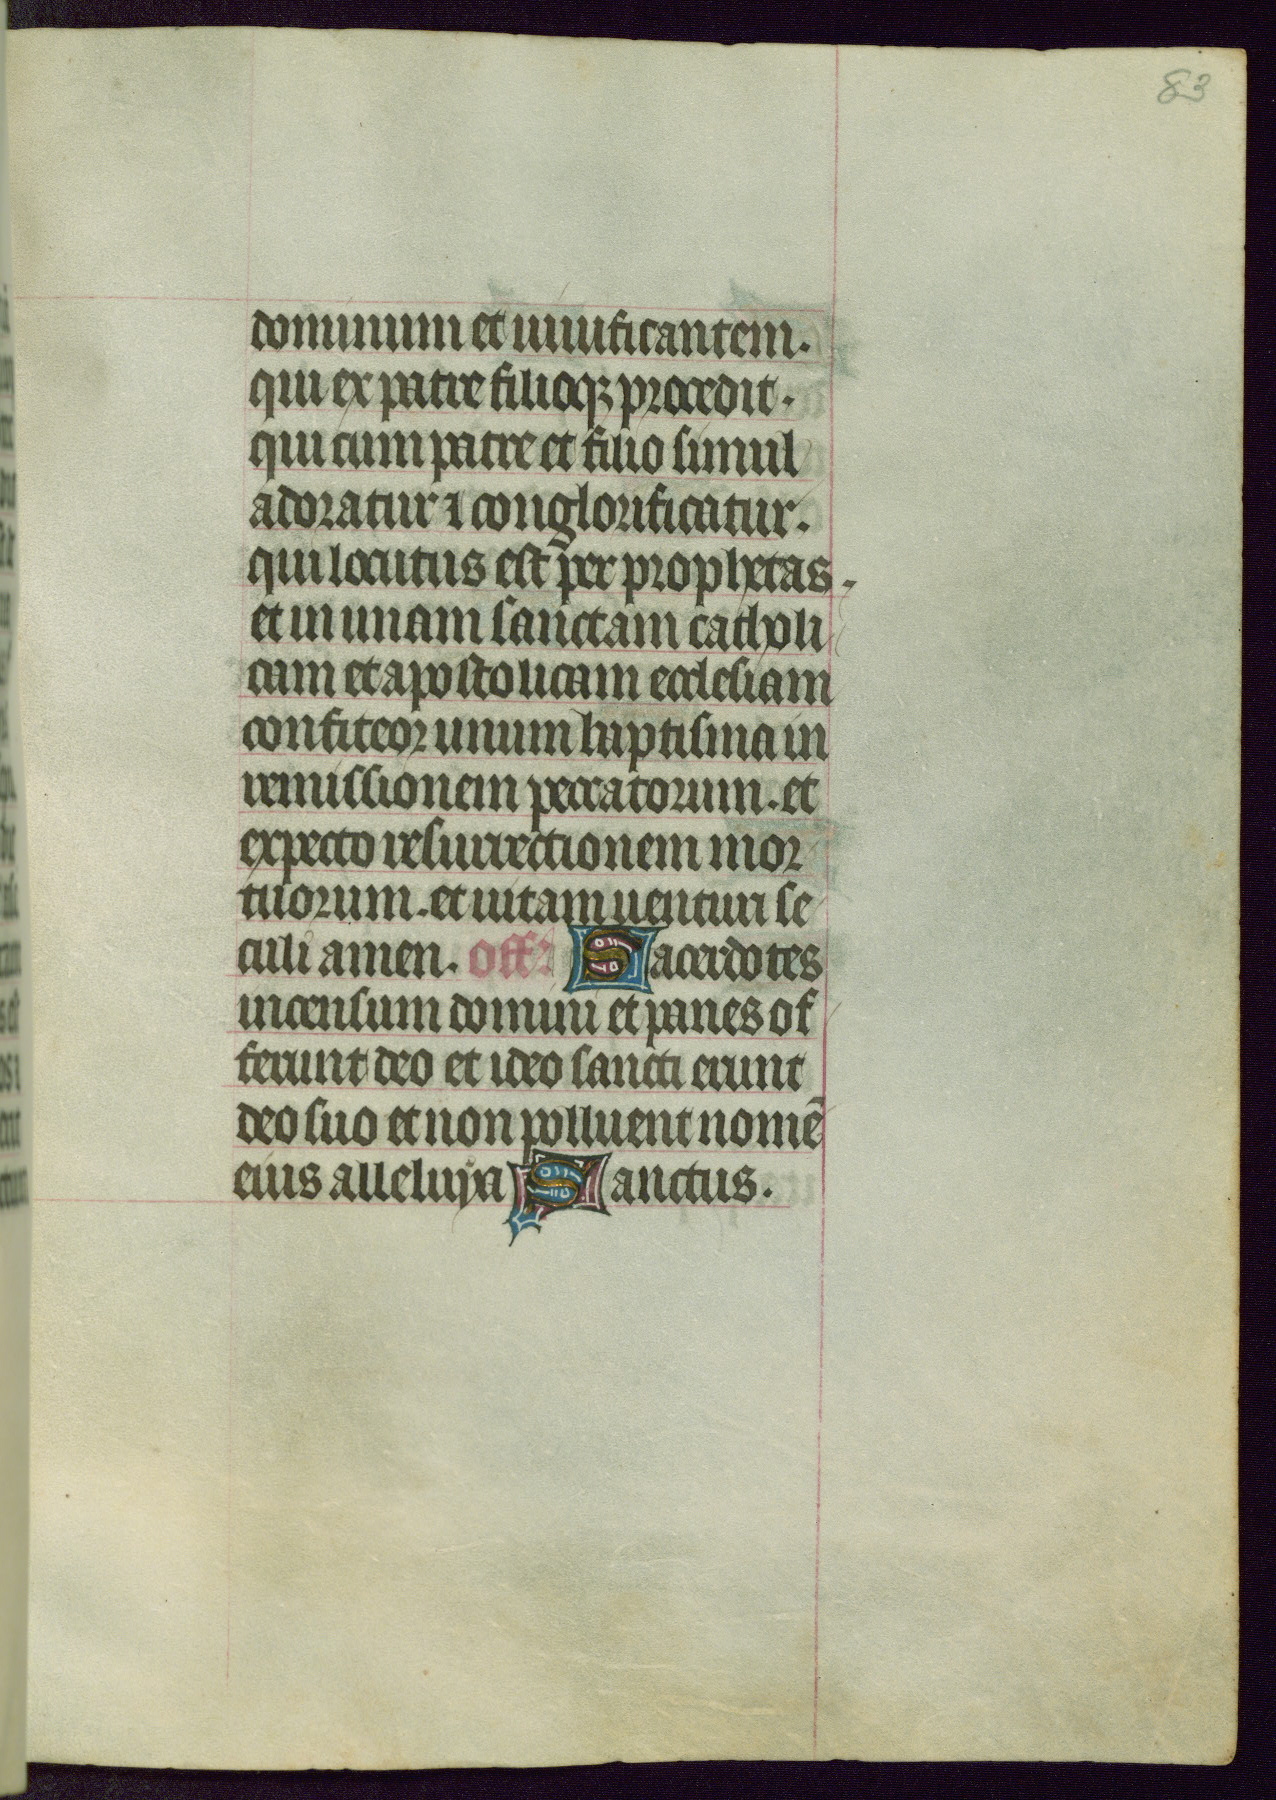 83
dominum et uiuificantem.
qui ex patre filioqz procedit.
qui cum patre et filio simul
adoratur ⁊ conglorificatur.
qui locutus est per prophetas.
et in unam sanctam catholi
cam et apostolicam ecclesiam
confiteor unum baptisma in
remissionem peccatorum. et
expecto resurrectionem mor
tuorum. et uitam uenturi se
culi amen. Off. Sacerdotes
incensum domini et panes of
ferunt deo et ideo sancti erunt
deo suo et non polluent nomē
eius alleluya Sanctus.